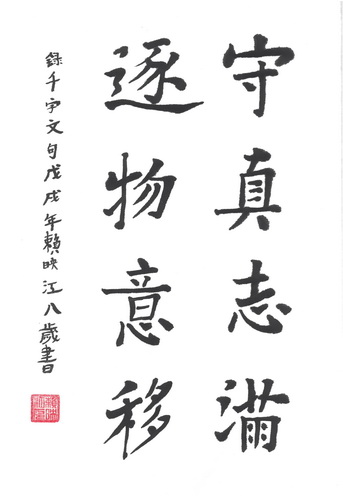 守真志滿
逐物意移
錄千字文句戊戌年賴映江八歲書